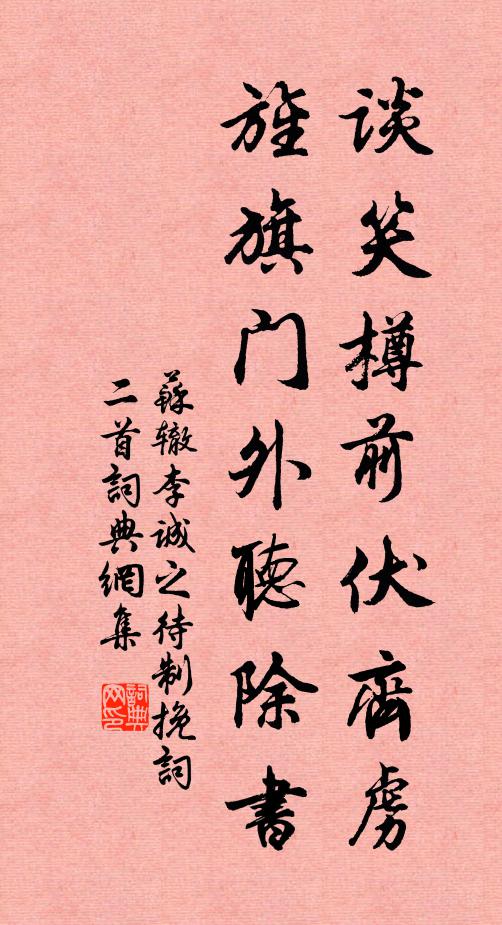 谈笑樽前伏齐虏
旌旗门外聽除書
蘇辙李诚之待制挽詞
二首詞典網集
詞典網印